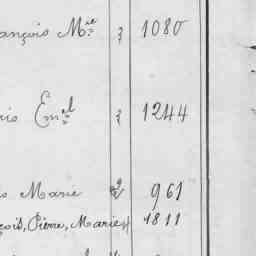 ançois M^ie 3 1080
is Em^el 3 1244
s Marie 2 961
çois, Pierre, Marie 4 1811